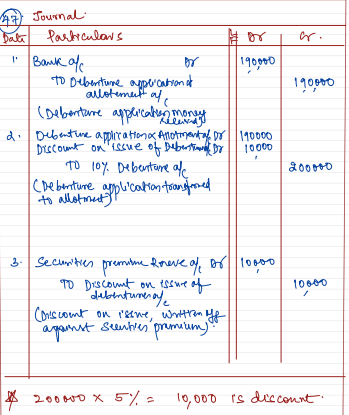 47 Journal.
Date Particulars Dr Cr.
1. Bank a/c Dr 190000
TO Debenture application & 190000
allotement a/c
(Debenture application money
received)
2. Debenture application & Allotment a/c Dr 190000
Discount on issue of Debenture a/c Dr 10000
TO 10% Debenture a/c 200000
(Debenture application transferred
to allotment)
3. Securities premium Reserve a/c Dr 10000
TO Discount on issue of 10000
debentures a/c
(Discount on issue, written off
against securities premium).
200000 × 5% = 10,000 is discount.